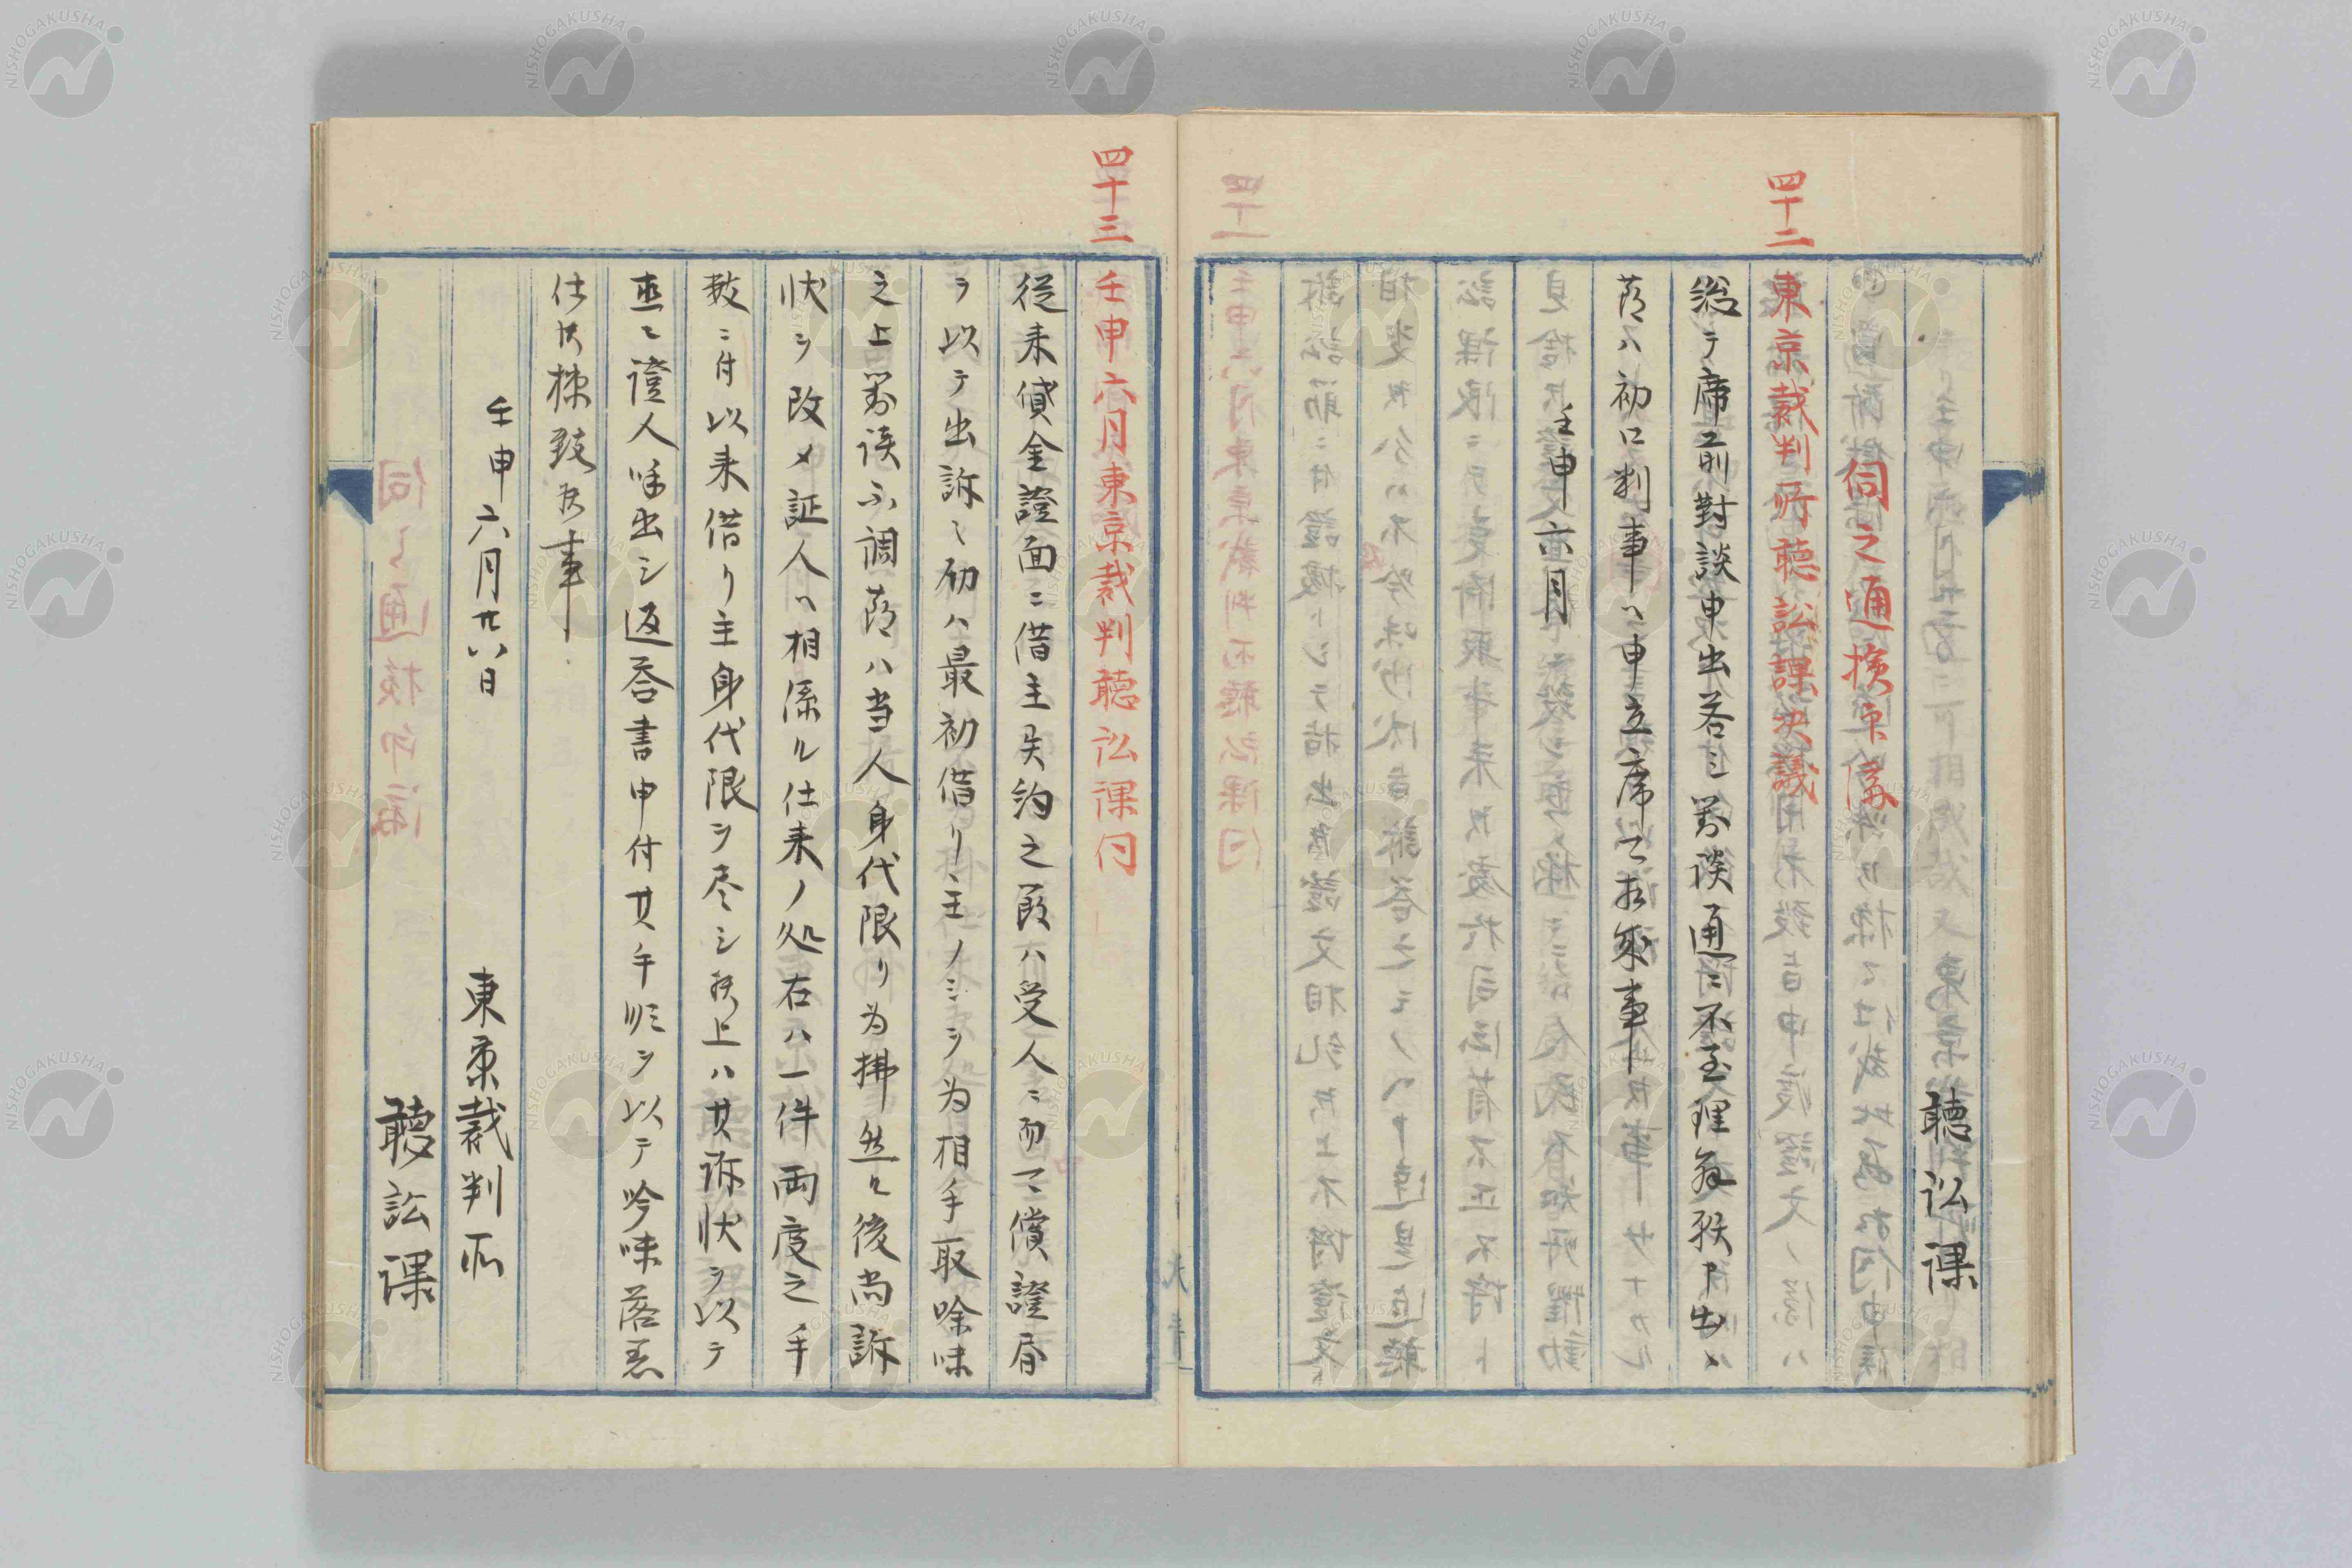 聴訟課
伺之通検印済
四十二
東京裁判所聴訟課決議
総テ席前對談申出若シ對談通ニ不至理解願申出候
節ハ初口判事ヘ申立席
壬申六月
四十三
壬申六月東京裁判聴訟課伺
従来貸金證面ニ借主失約之節ハ受人ニ而可償證書
ヲ以テ出訴之初ハ最初借リ主ノミヲ為相手取吟味
之上對談不調節ハ当人身代限リ為拂然ル後尚訴
状ヲ改メ証人ヘ相係ル仕来ノ処右ハ一件両度之手
数ニ付以来借リ主身代限ヲ尽シ候上ハ其訴状ヲ以テ
直ニ證人呼出シ返答書申付其手順ヲ以テ吟味落着
仕候様致度事
壬申六月廿八日
東京裁判所
聴訟課